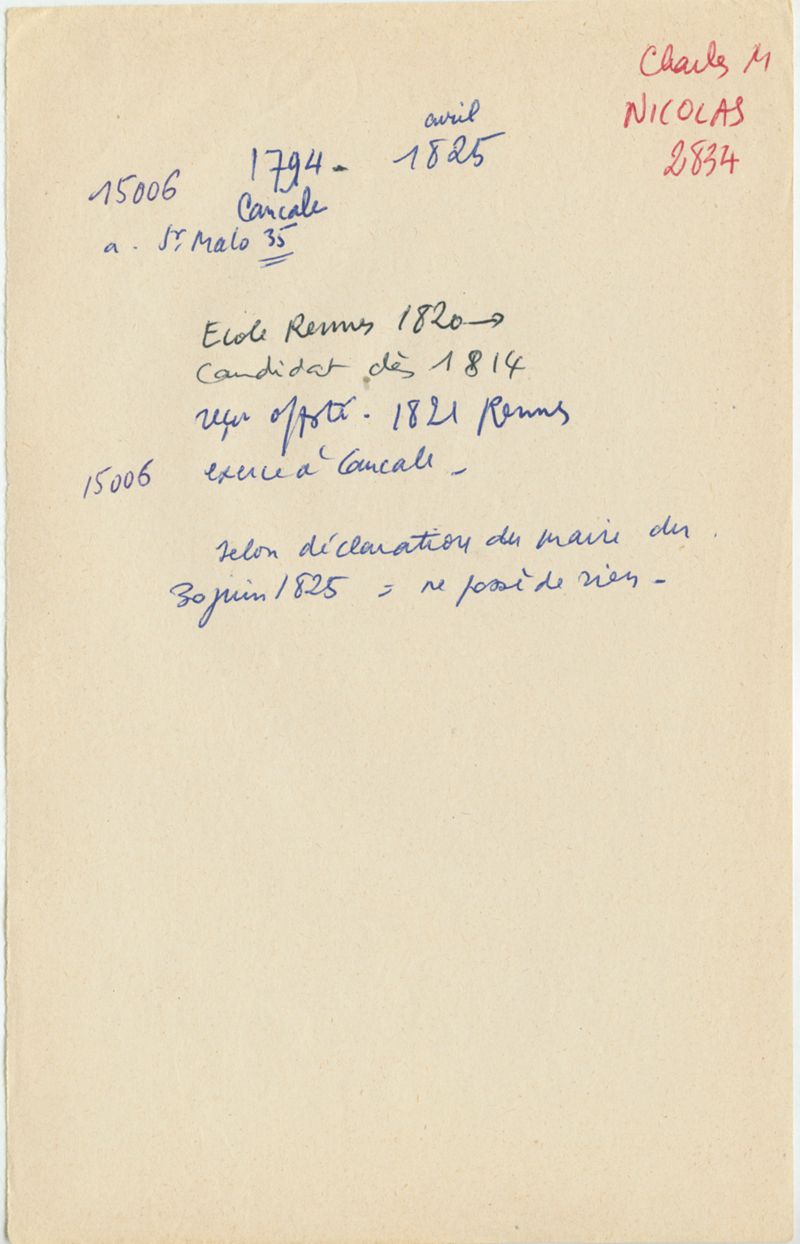 Charles M
NICOLAS
2834
avril
15006 1794 - 1825
Cancale
a. St Malo 35
Ecole Rennes 1820 →
Candidat dès 1814
reçu 1821 Rennes
15006 exerce à Cancale -
selon déclaration du maire du
30 juin 1825 = ne possède rien -